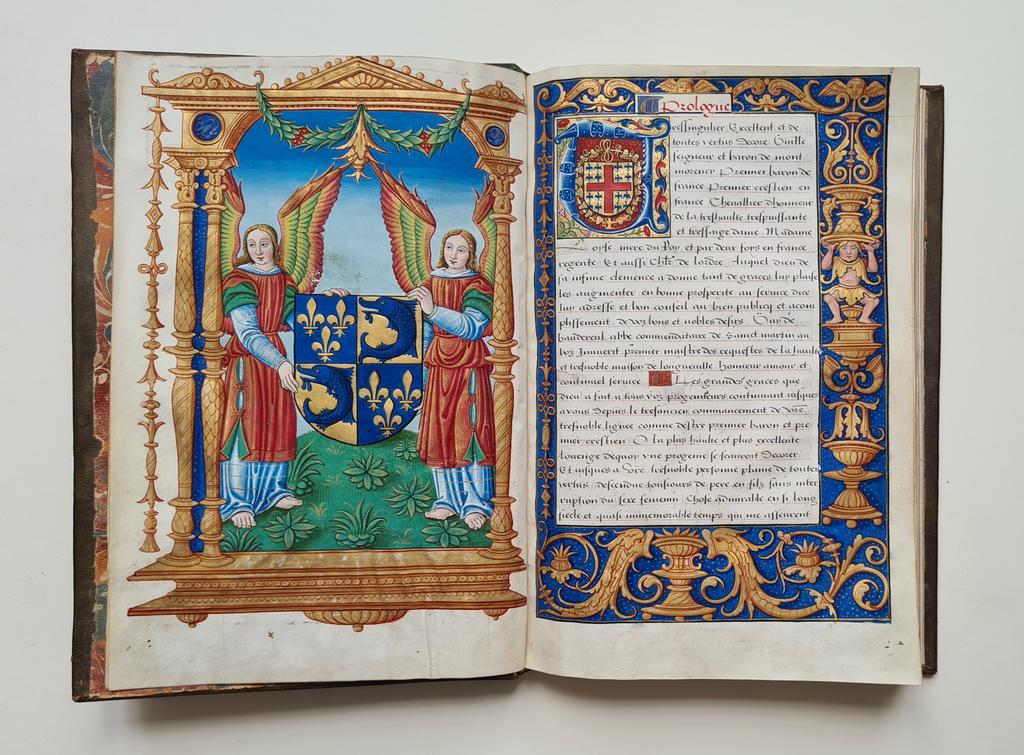 Prologue
Tressingulier Excellent et de
toutes vertus Decore Guille
seigneur et baron de mont
morency Premier baron de
france Premier crestien en
france Chevallier dhonneur
de la treshaulte trespuissante
et tressaige dame Madame
Loyse mere du Roy et par deux foys en france
regente Et aussi Chlr de lordre Auquel dieu de
sa infime clemence a donne tant de graces luy plaise
les augmenter en bonne prosperite au service dice
luy adresse et bon conseil au bien publicq et acom
plissement de voz bons et nobles desirs
baudereul abbe commendataire de Sainct martin au
boz premier maistre des requestes de la haulte
et tresnoble maison de longueville Honneur amour et
continuel service Les grandes graces que
dieu a fait a tous voz progeniteurs continuant iusques
avous Depuis le tresancien commancement de vostre
tresnoble ligne comme destre premier baron et pre
mier crestien O la plus haulte et plus excellente
louenge dequoy vne progenie se scauroit Decorer
Et iusques a vostre tresnoble personne plaine de toutes
vertus descendue tousiours de pere en filz sans inter
ruption du sexe femenin Chose admirable en si long
siecle et quasi inmemorable temps qui me asseurent